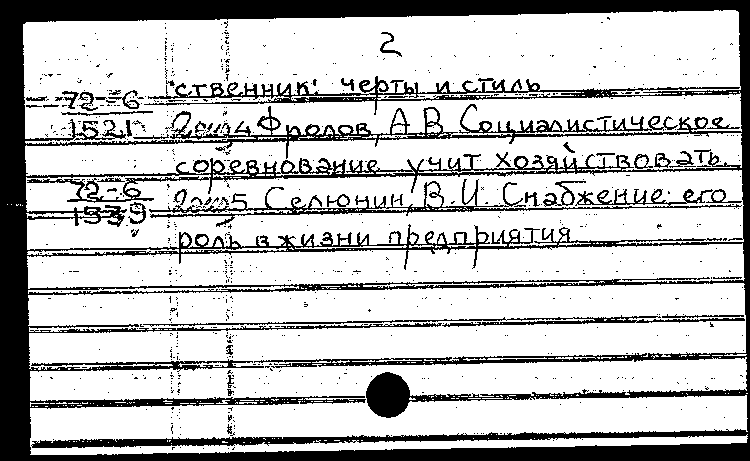 2
ственник: черты и стиль
72-6
1521 4 Фролов, А В Социалистическое
соревнование учит хозяйствовать.
72-6
5 Селюнин, В.И. Снабжение: его
роль в жизни предприятия